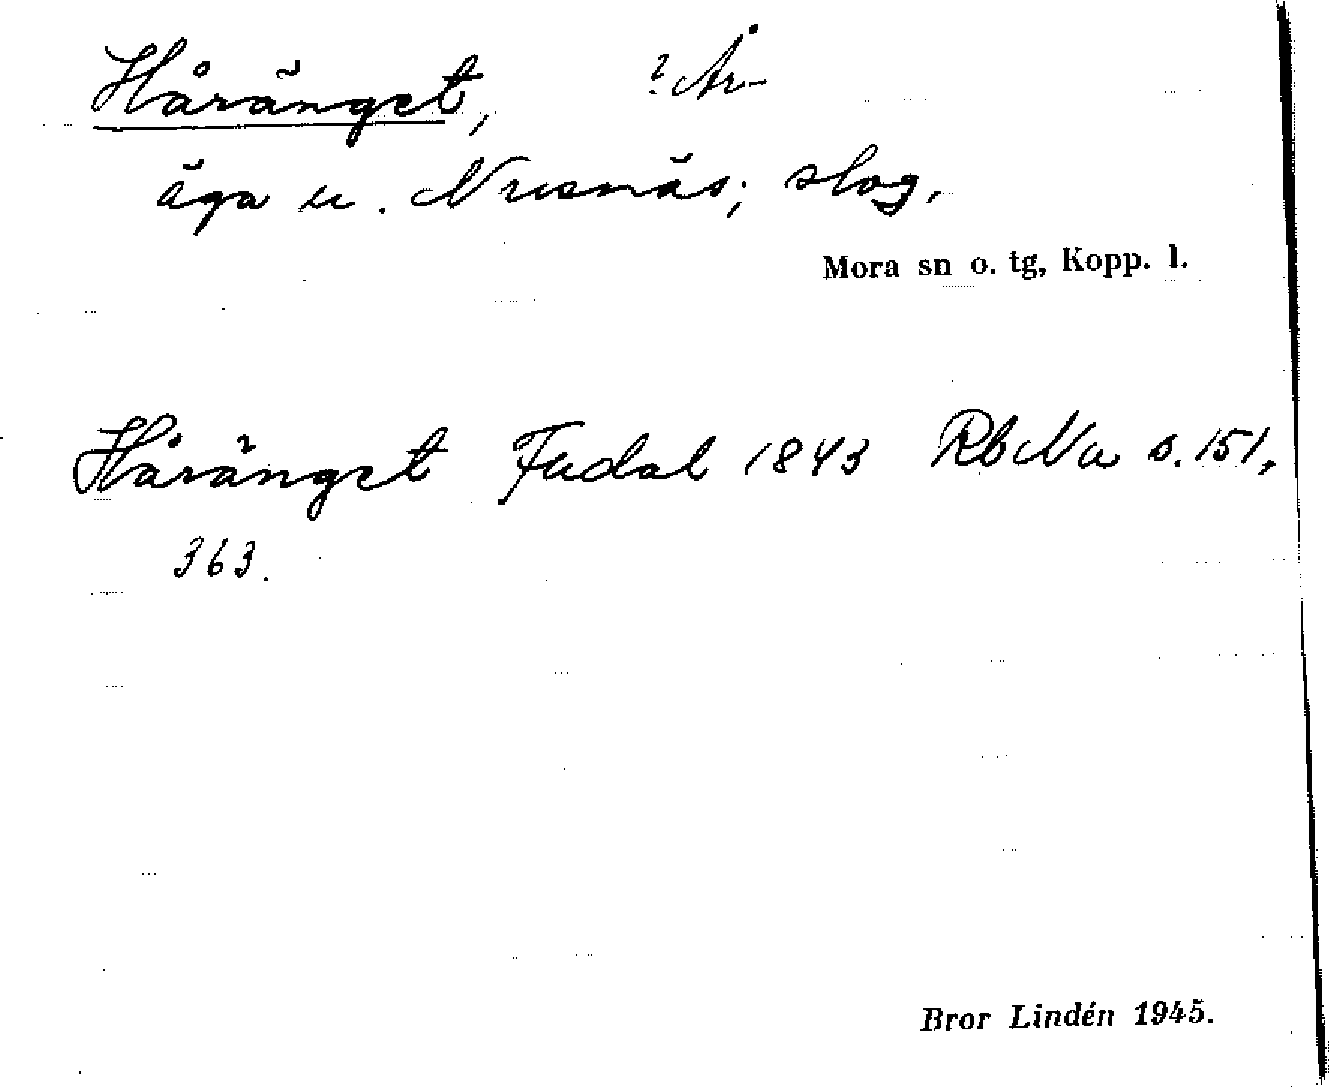 Håränget, ? År-
äga u. Nusnäs; slog.
Mora sn o. tg, Kopp. l.
Håränget Fudal 1843 Rb Na s. 151,
363.
Bror Lindén 1945.